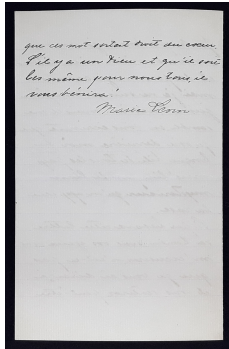 que ces mot sortent droit du coeur
S'il y a un Dieu et qu'il soit
les même pour nous tous, il
vous bénira!
Marie